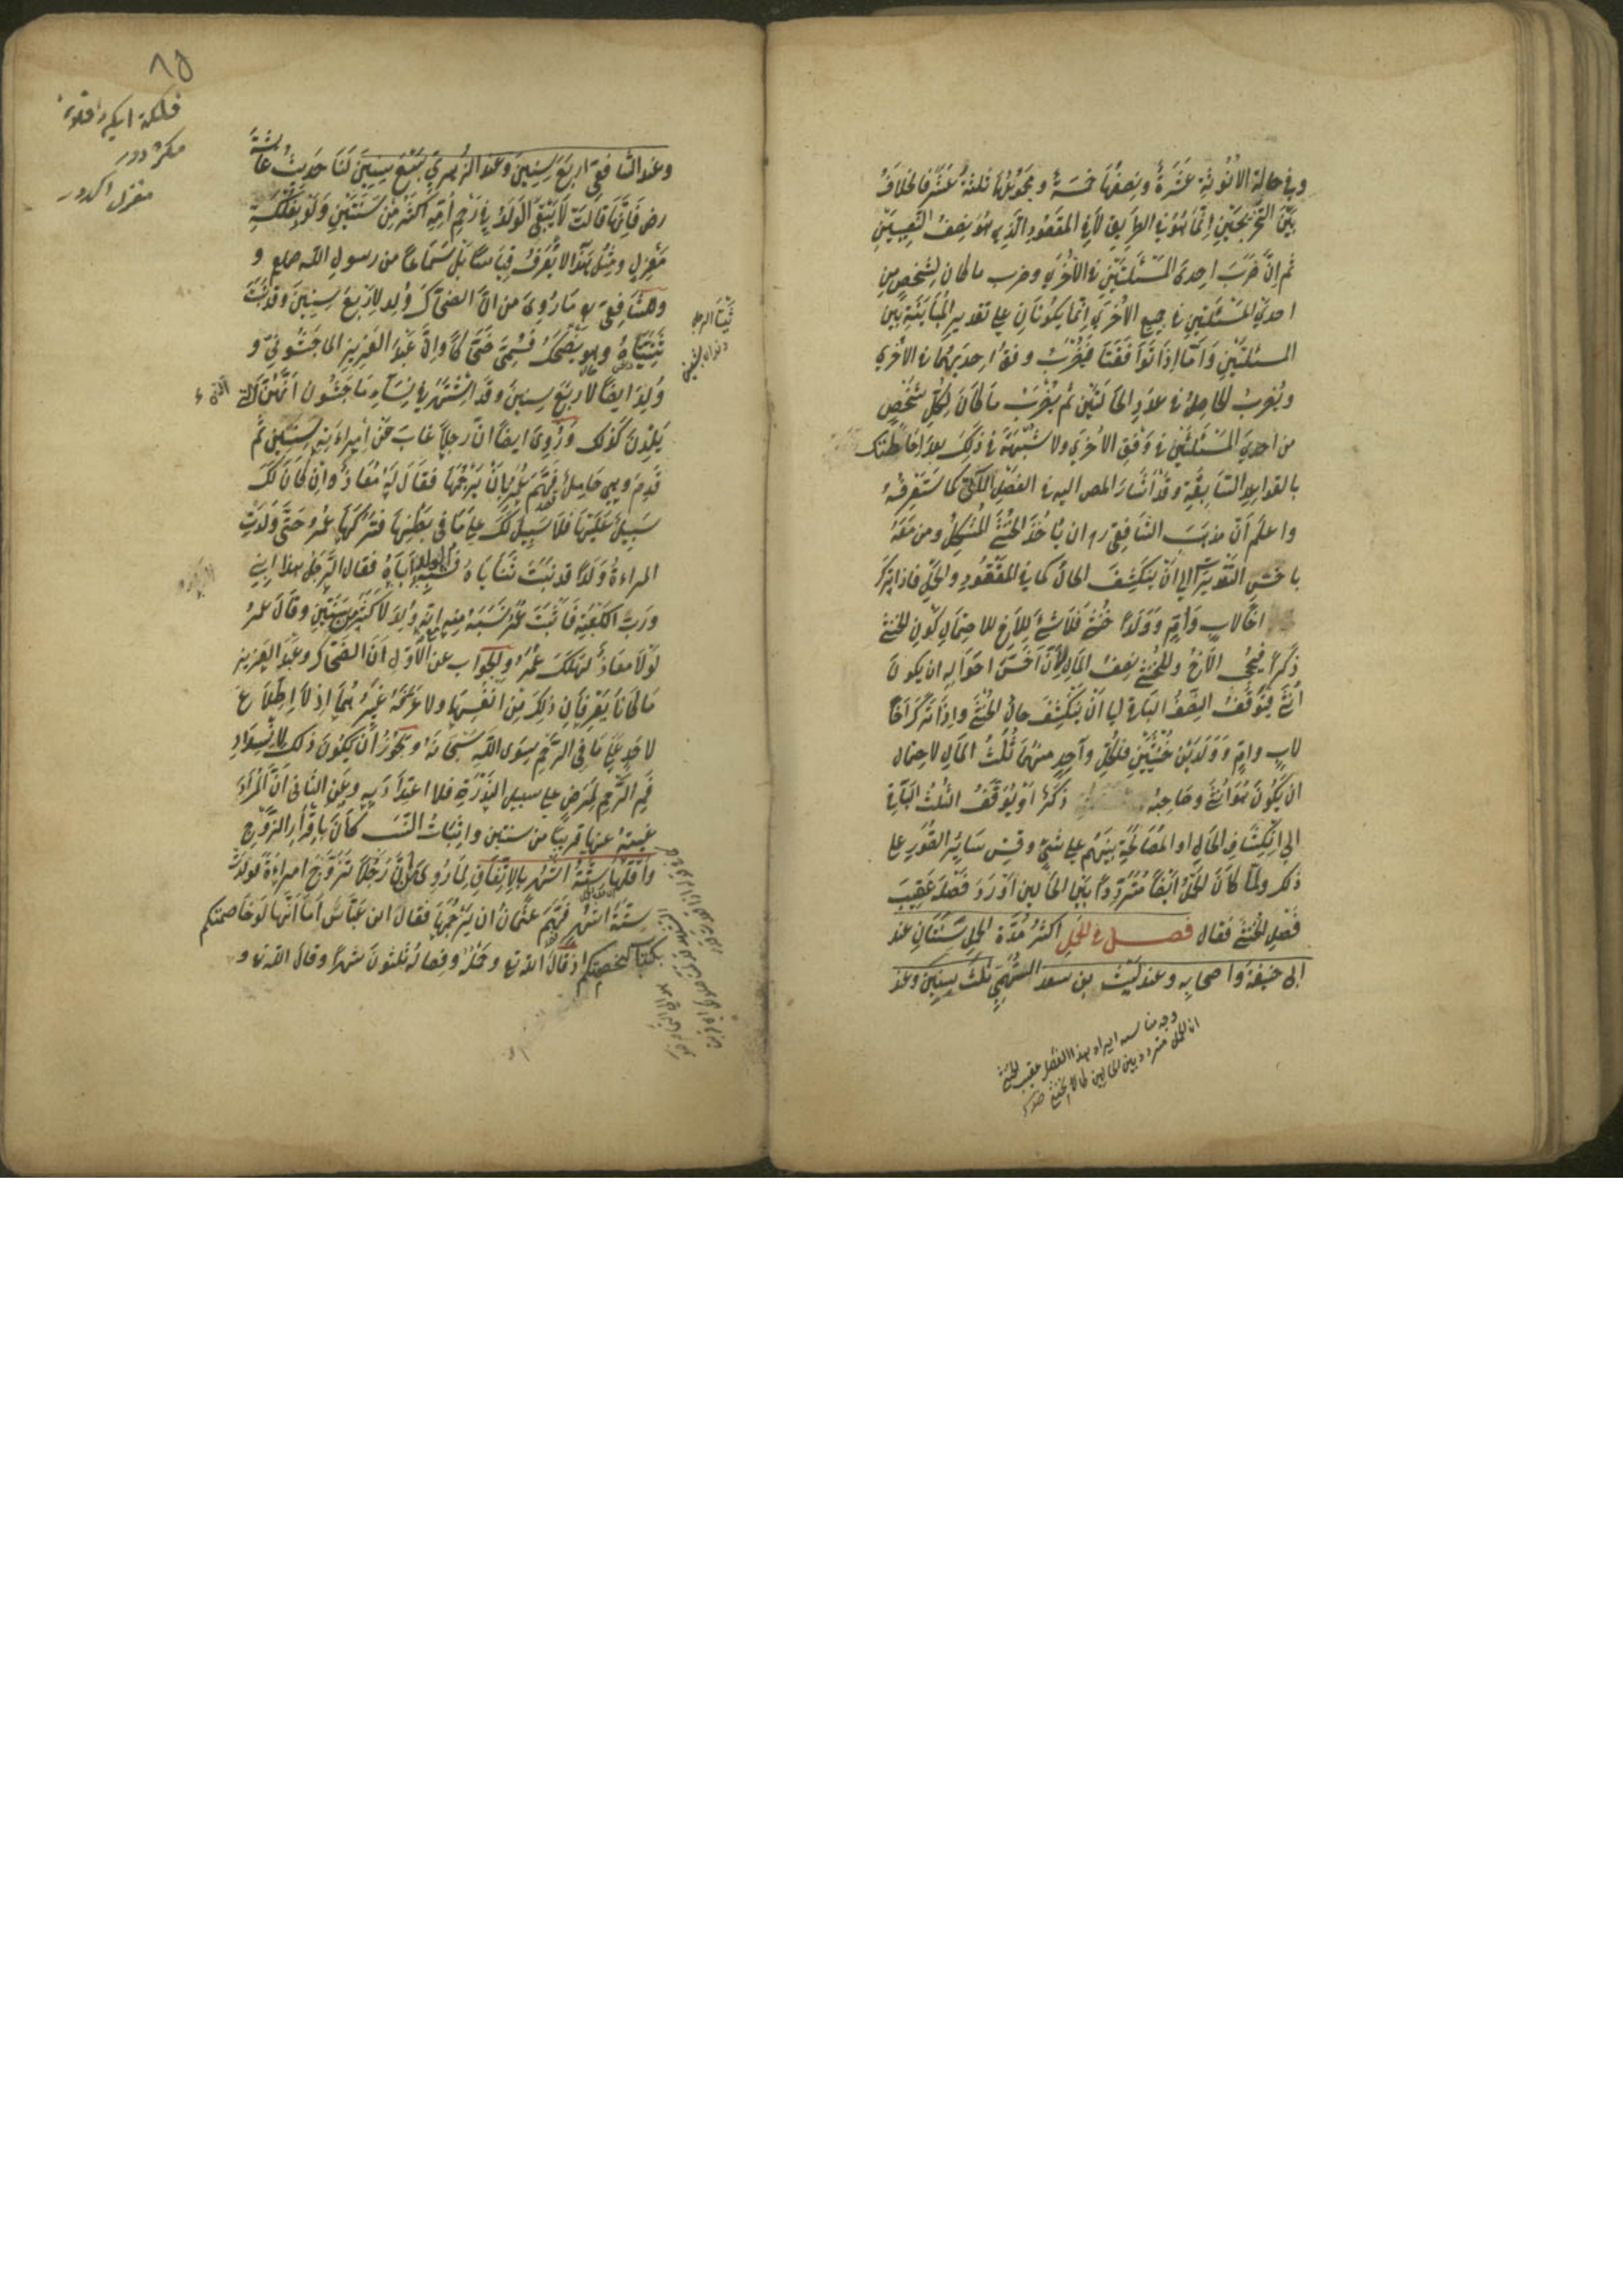 وفي حالة الانوثة عشرة ونصفها خمسة ومجموعها ثلثة عشر فالخلاف
بين التخريجين انما هو في الطريق لا في المقصود الذي هو نصف النصيبين
ثم ان ضرب احدى المسئلتين في الاخرى وضرب ما كان لشخص من
احدى المسئلتين في جميع الاخرى انما يكونان على تقدير المباينة بين
المسئلتين واما اذا توافقتا فيضرب وفق احديهما في الاخرى
ويضرب الحاصل في عدد الحالتين ثم يضرب ما كان لكل شخص
من احدى المسئلتين في وفق الاخرى ولا شبهة في ذلك بعد احاطتك
بالقواعد السابقة وقد اشار المص اليه في الفصل الآتي كما ستعرفه
واعلم ان مذهب الشافعي رح ان ياخذ الخنثى المشكل ومن معه
باخس التقديرين الى ان ينكشف الحال كما في المفقود والحمل فاذا ترك
اخا لاب وام وولدا خنثى فلا شئ للاخ لاحتمال كون الخنثى
ذكرا فيحجب الاخ وللخنثى نصف المال لان اخس احواله ان يكون
انثى فيوقف النصف الباقي الى ان ينكشف حال الخنثى واذا ترك اخا
لاب وام وولدين خنثيين فلكل واحد منهما ثلث المال لاحتمال
ان يكون هو انثى وصاحبه ذكرا ويوقف الثلث الباقي
الى انكشاف الحال او المصالحة بينهم على شئ وقس سائر الصور على
ذلك ولما كان الحمل ايضا مترددا بين الحالين اورد فصله عقيب
فصل الخنثى فقال فصل في الحمل اكثر مدة الحمل سنتان عند
ابى حنيفة واصحابه وعند ليث بن سعد الفهمي ثلث سنين وعند
وجه مناسبة ايراد هذا الفصل عقيب الخنثى
ان الحمل متردد بين الحالين كالخنثى
٨٥
وعند الشافعي اربع سنين وعند الزهري سبع سنين لنا حديث عائشة
رض فانها قالت لا يبقى الولد في رحم امه اكثر من سنتين ولو بفلكة
مغزل ومثل هذا لا يعرف قياسا بل سماعا من رسول الله صلعم و
وللشافعي رح ما روي من ان الضحاك ولد لاربع سنين وقد نبتت
ثنيتاه وهو يضحك فسمي ضحاكا وان عبد العزيز الماجشوني
ولد ايضا لاربع سنين وقد اشتهر في نساء ماجشون انهن
يلدن كذلك وروي ايضا ان رجلا غاب عن امراءته سنتين ثم
قدم وهي حامل فهم عمر بان يرجمها فقال له معاذ وان كان لك
سبيل عليها فلا سبيل لك على ما في بطنها فتركها عمر حتى ولدت
المراءة ولدا قد نبتت ثناياه يشبه اباه فقال الرجل هذا ابني
ورب الكعبة فاثبت عمر نسبه منه مع انه ولد لاكثر من سنتين وقال عمر
لولا معاذ لهلك عمر والجواب عن الاول ان الضحاك وعبد العزيز
ما كانا يعرفان ذلك من انفسهما ولا عرفه غيرهما اذ لا اطلاع
لاحد على ما في الرحم سوى الله سبحانه ويجوز ان يكون ذلك لانسداد
فم الرحم لمرض على سبيل الندرة فلا اعتداد به وعن الثاني ان المراد
غيبته عنها قريبا من سنتين واثبات النسب كان باقرار الزوج
واقلها ستة اشهر بالاتفاق لما روي ان رجلا تزوج امراءة فولدت
ستة اشهر فهم عثمان ان يرجمها فقال ابن عباس اما انها لو خاصمتكم
بكتاب الله لخصمتكم اذ قال الله تعالى وحمله وفصاله ثلثون شهرا وقال الله تعالى و